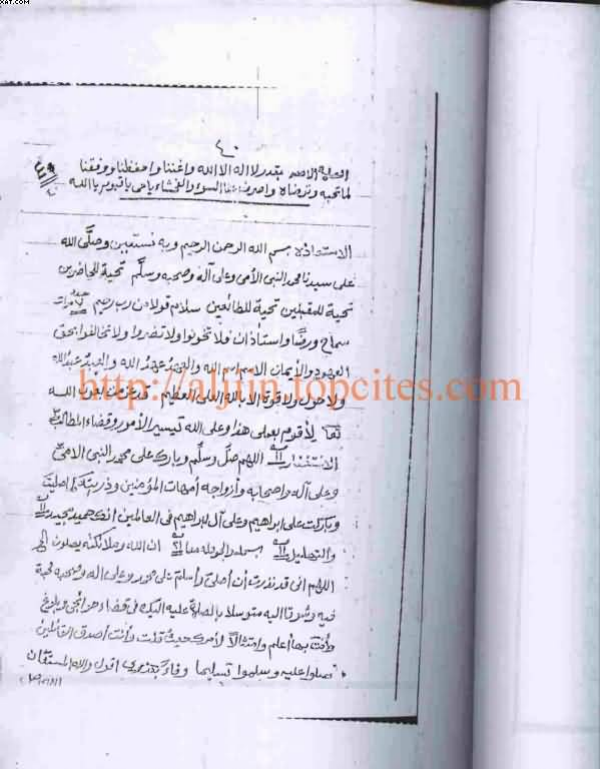 XAT.COM
٤٠
بقدر لا اله الا الله واغننا واحفظنا ووفقنا
لما تحبه وترضاه واصرف عنا السوء والفحشاء ياحى ياقيوم يا الله
الاستعاذة بسم الله الرحمن الرحيم وبه نستعين وصلَّى الله
على سيدنا محمد النبى الأمى وعلى آله وصحبه وسلَّم تحية للحاضرين
تحية للمقبلين تحية للطائعين سلام قولا من رب رحيم
سماح ورضًا واستأذان فلا تخونوا ولا تضروا ولا تخالفوا بحق
العهود والأيمان الاسم اسم الله والعهد عهد الله والعبد عبد الله
ولا حول ولا قوة الا بالله العلى العظيم
لأقوم بعملى هذا وعلى الله تيسير الأمور وقضاء المطالب
الاستغفار اللهم صلِّ وسلِّم وبارك على محمد النبى الامى
وعلى آله واصحابه وأزواجه أمهات المؤمنين وذريته كما صليت
وباركت على ابراهيم وعلى آل ابراهيم فى العالمين انك حميد مجيد
والتهليل ان الله وملائكته يصلون
اللهم انى قد نذرت أن أصلى وأسلم على محمد وعلى اله وصحبه محبة
فيه وشوقا اليه متوسلا بالصلاة عليه اليك فى قضاء حوائجى
وأنت بها أعلم وامتثالاً لأمرك حيث قلت وأنت أصدق القائلين
صلوا عليه وسلموا تسليما وفاء اقول والله المستعان
http://aljtin.topcites.com